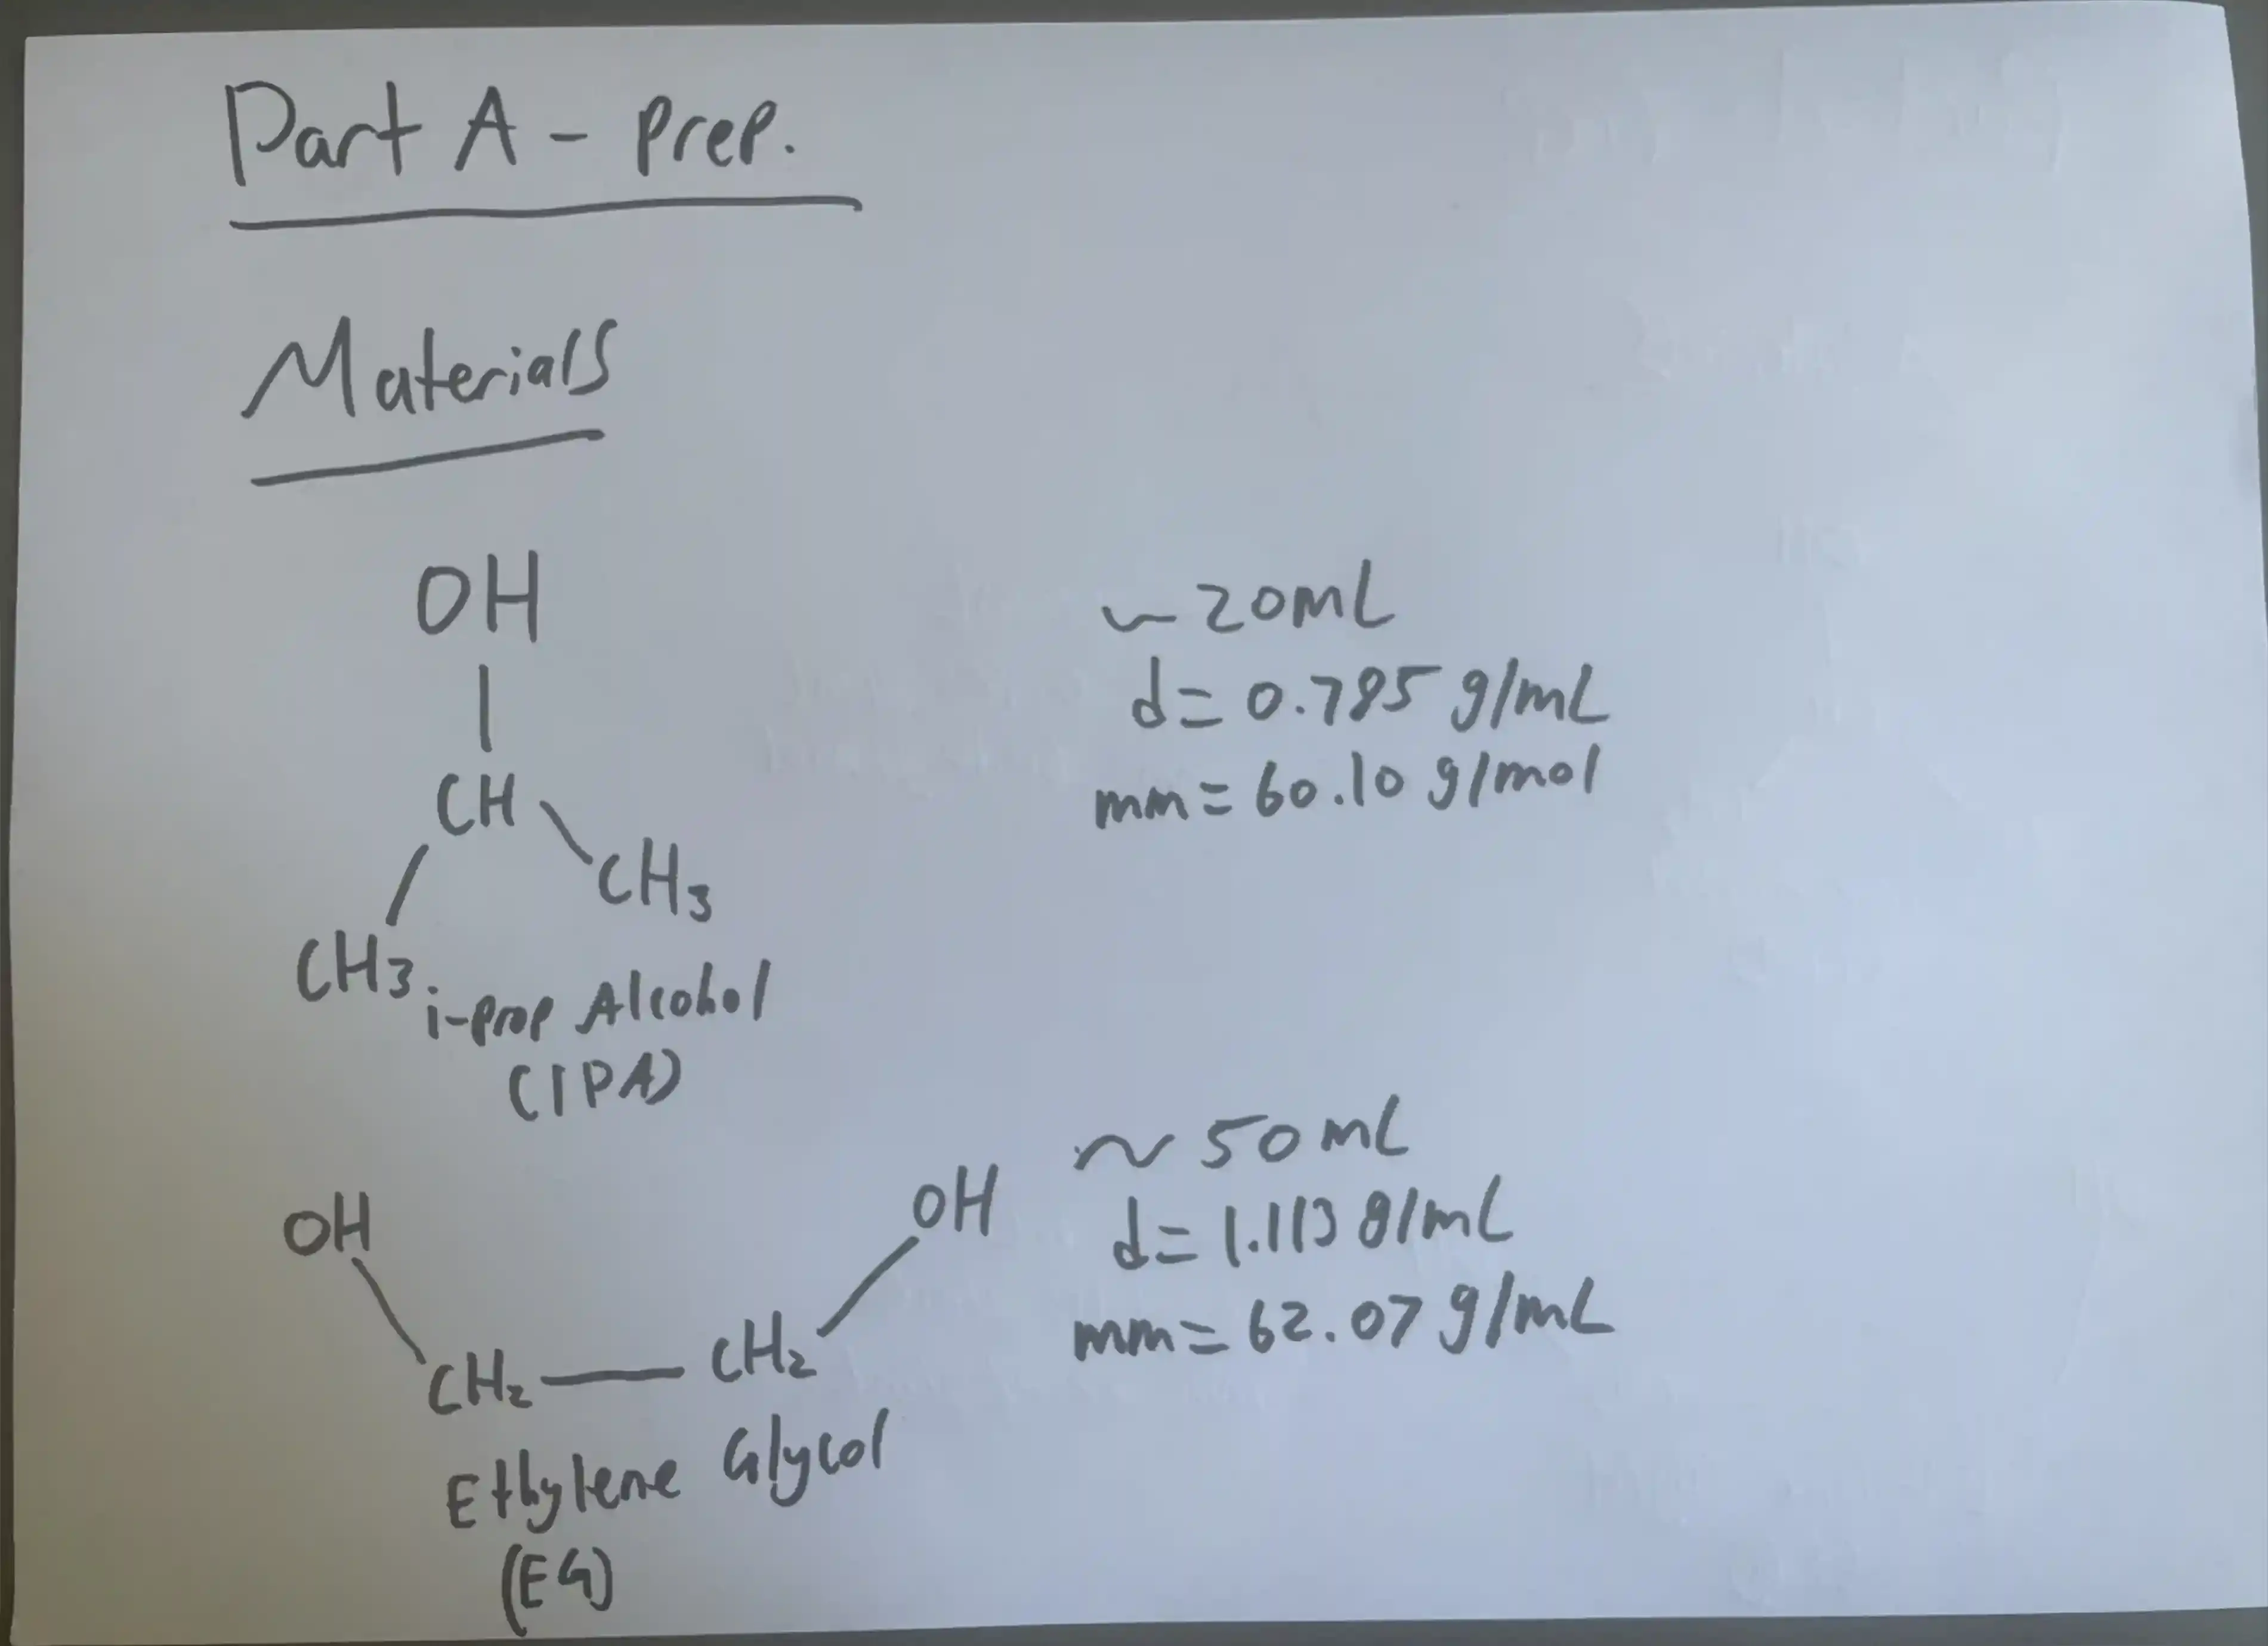 Part A - Prep.
Materials
OH
CH
CH3
CH3
i-prop Alcohol
(IPA)
~ 20mL
d = 0.785 g/mL
mm = 60.10 g/mol
OH
OH
CH2
CH2
Ethylene Glycol
(EG)
~ 50mL
d = 1.113 g/mL
mm = 62.07 g/mL